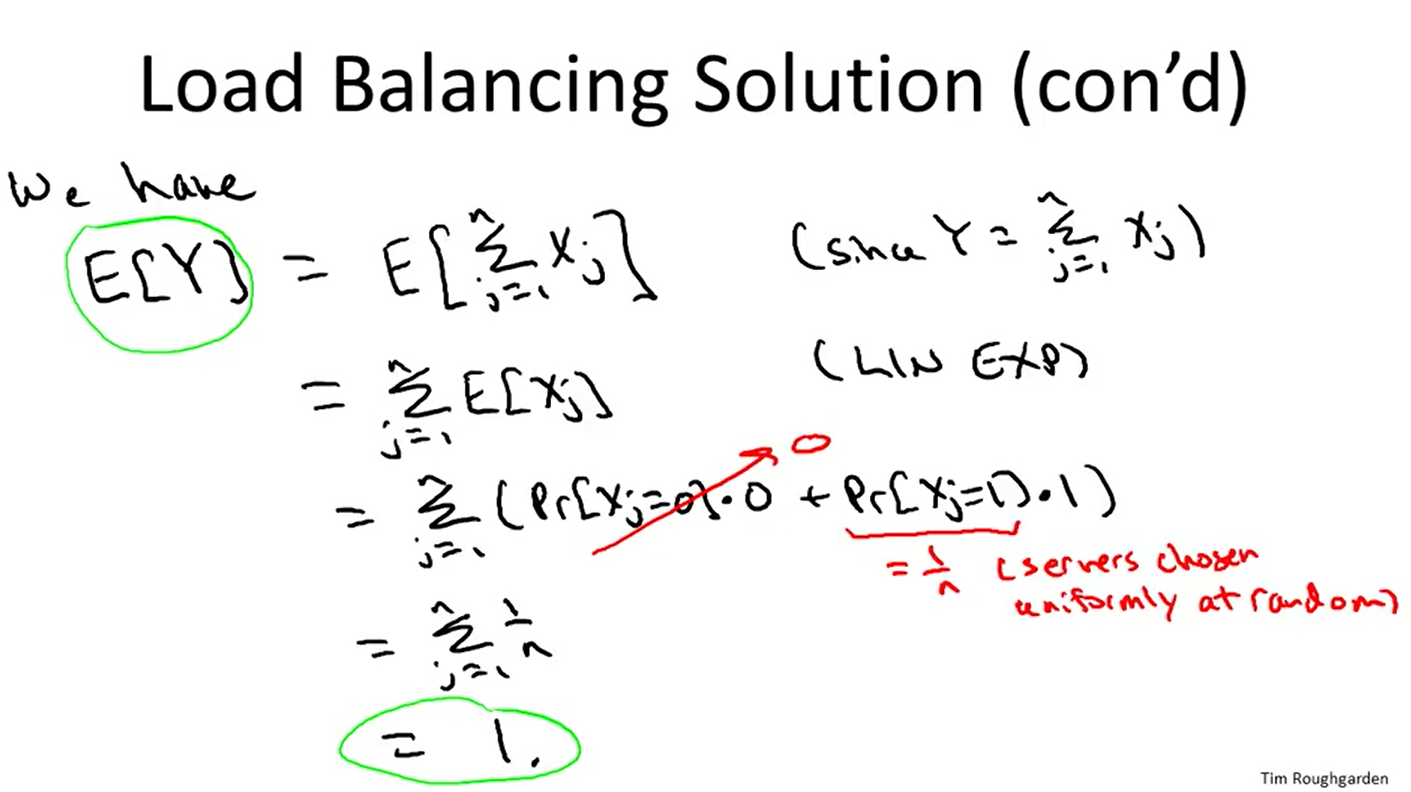 Load Balancing Solution (con'd)
We have
E[Y] = E[∑_{j=1}^{n} Xj] (since Y = ∑_{j=1}^{n} Xj)
= ∑_{j=1}^{n} E[Xj] (LIN EXP)
= ∑_{j=1}^{n} (Pr[Xj=0]·0 + Pr[Xj=1]·1)
0
= 1/n (servers chosen
uniformly at random)
= ∑_{j=1}^{n} 1/n
= 1.
Tim Roughgarden